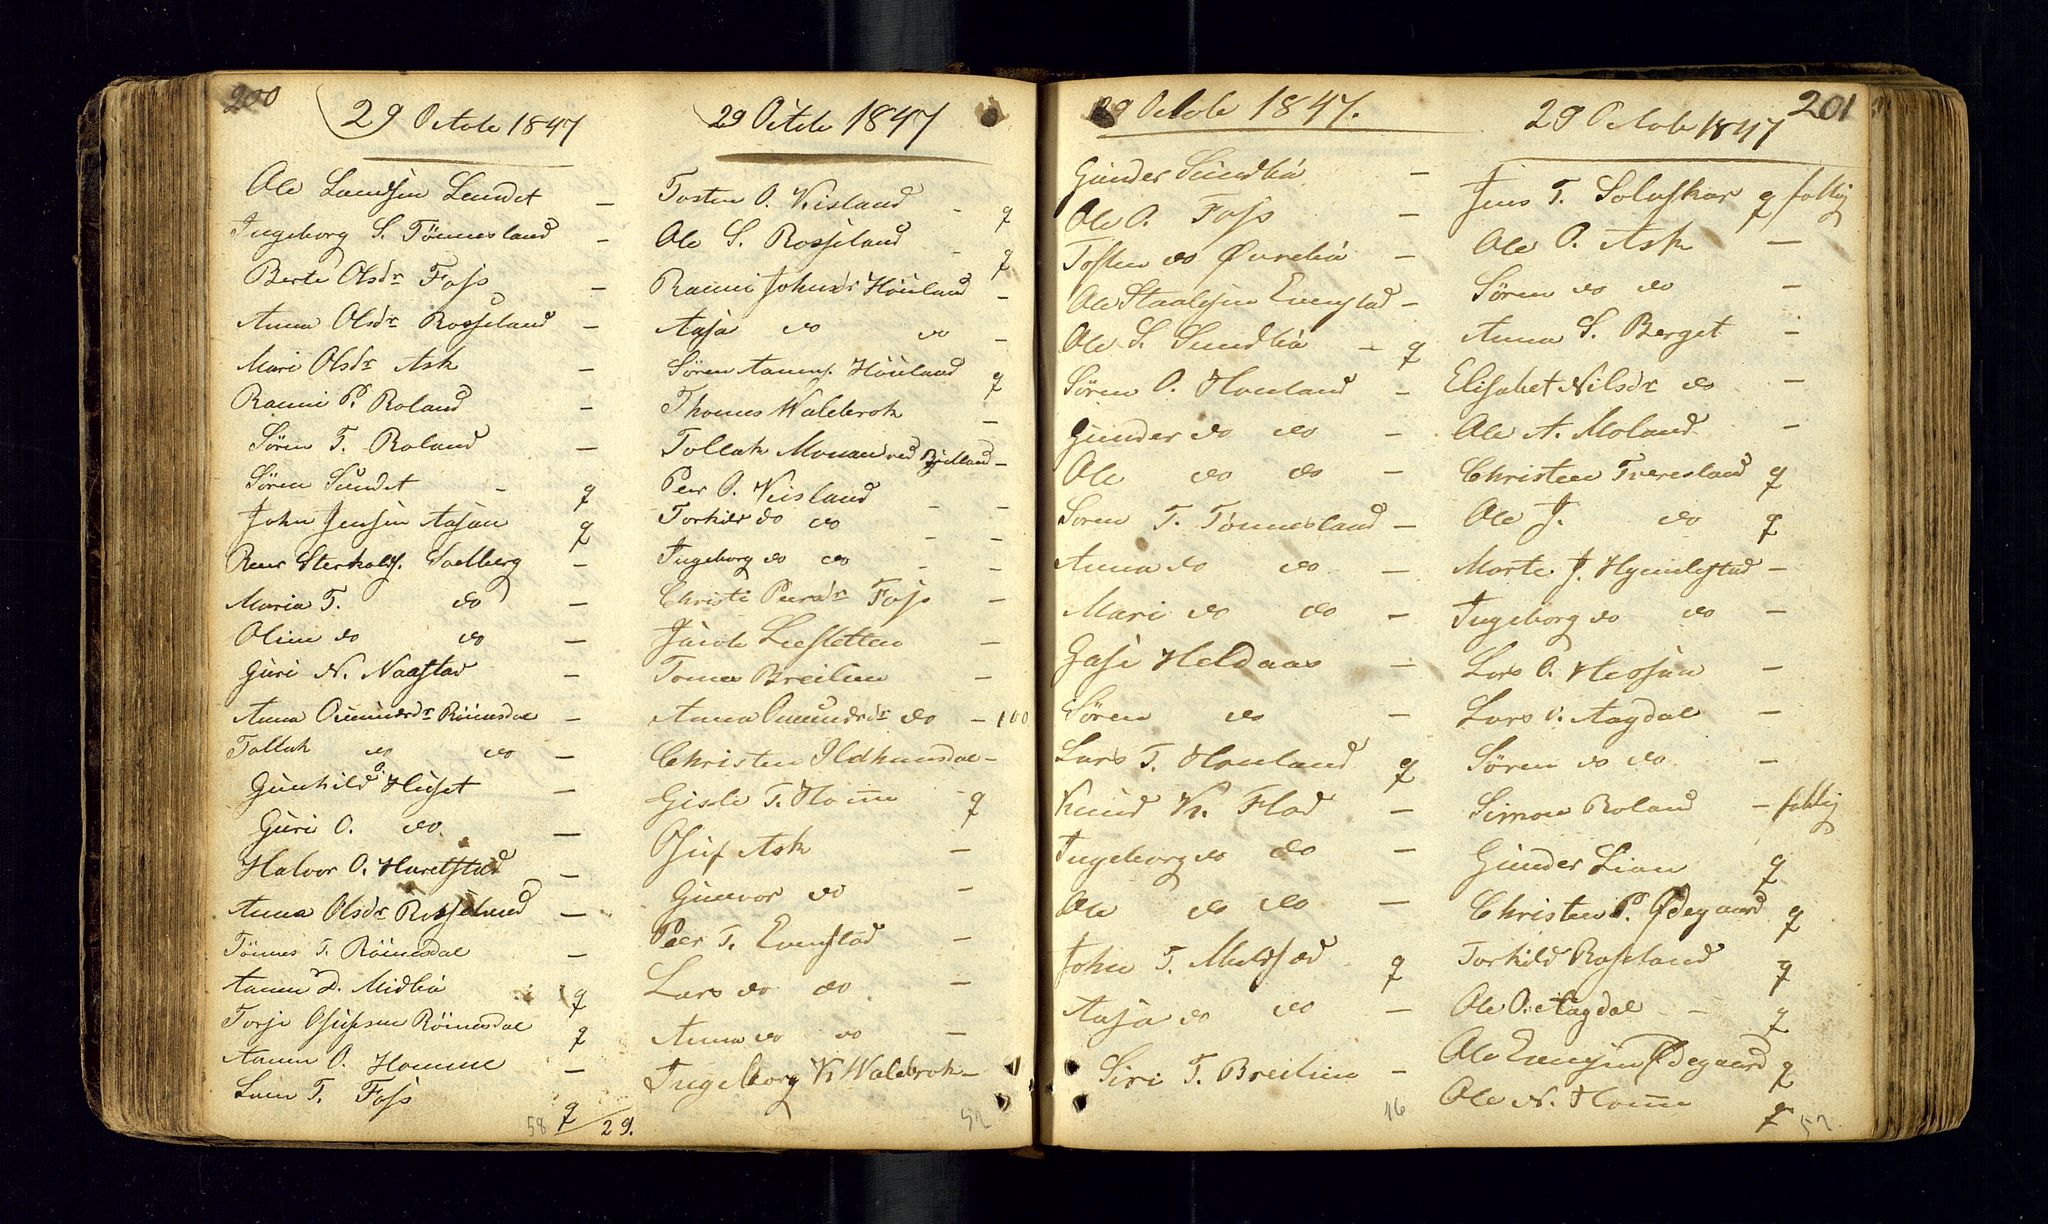 200
29 Octobr 1847
Ole Lundsen Lundet –
Ingeborg S. Tønnesland –
Berte Olsdr Foss –
Anna Olsdr Rosseland –
Mari Olsdr Ask –
Ranni P. Roland –
Søren T. Roland –
Søren Sundet – q
John Jensen Aasan q
Peer Sterkols. Soelberg –
Maria T. do –
Oline do do –
Guri N. Naastad –
Anna Omundsdr Röinesdal –
Tollak do do –
Gunhild O. Huset –
Guri O. do –
Halvor O. Haretstad –
Anna Olsdr Rosseland –
Tönnes T. Röinesdal –
Aanen D. Midbö q
Torje Osufsen Röinesdal q
Aanen O. Homme –
Lven T. Foss q
58 / 29.
29 Octbr 1847
Tosten O. Veisland – q
Ole S. Rosseland – q
Ranni Johnsdr Höüland –
Aasa do do –
Søren Aanens. Höüland q
Thomes Walebrok –
Tollak Monan ved Birkland –
Peer O. Veisland – –
Torkild do do – –
Ingeborg do do – –
Christi Peersdr Foss –
Jacob Leesletten –
Tomes Breilien –
Anna Omundsdr do – 100
Christen Ildhunsdal –
Gisle T. Homme – q
Osuf Ask –
Gunvor do –
Peer T. Evenstad –
Lars do do –
Anna do do –
Ingeborg K Walebrok –
52
29 Octobr 1847.
Gunder Sundbö –
Ole O. Foss –
Tosten do Øvrebö –
Ole Staalesen Evenstad –
Ole S. Sundbö – q
Søren O. Houland –
Gunder do do –
Ole do do –
Søren T. Tönnesland –
Anna do do –
Mari do do –
Gasi Heldaas –
Søren do –
Lars T. Houland q
Knud K. Flad –
Ingeborg do do –
Ole do do –
John T. Mulds od q
Aasa do do –
Siri T. Breilien –
46
201
29 Octobr 1847
Jens T. Soluskar q fattig
Ole O. Ask –
Søren do do –
Anna S. Berget –
Elisabet Nilsdr do –
Ole A. Moland –
Christen Tveresland q
Ole J. do q
Marte J. Hyemlestad –
Ingeborg do do –
Lars O. Hessaa –
Lars O. Aagdal –
Søren do do –
Simon Roland – fattig
Gunder Lian q
Christen P. Ødegaard q
Torkild Rosseland q
Ole O. Aagdal – q
Ole Evensen Ødegaard q
Ole N. Homme q
52.